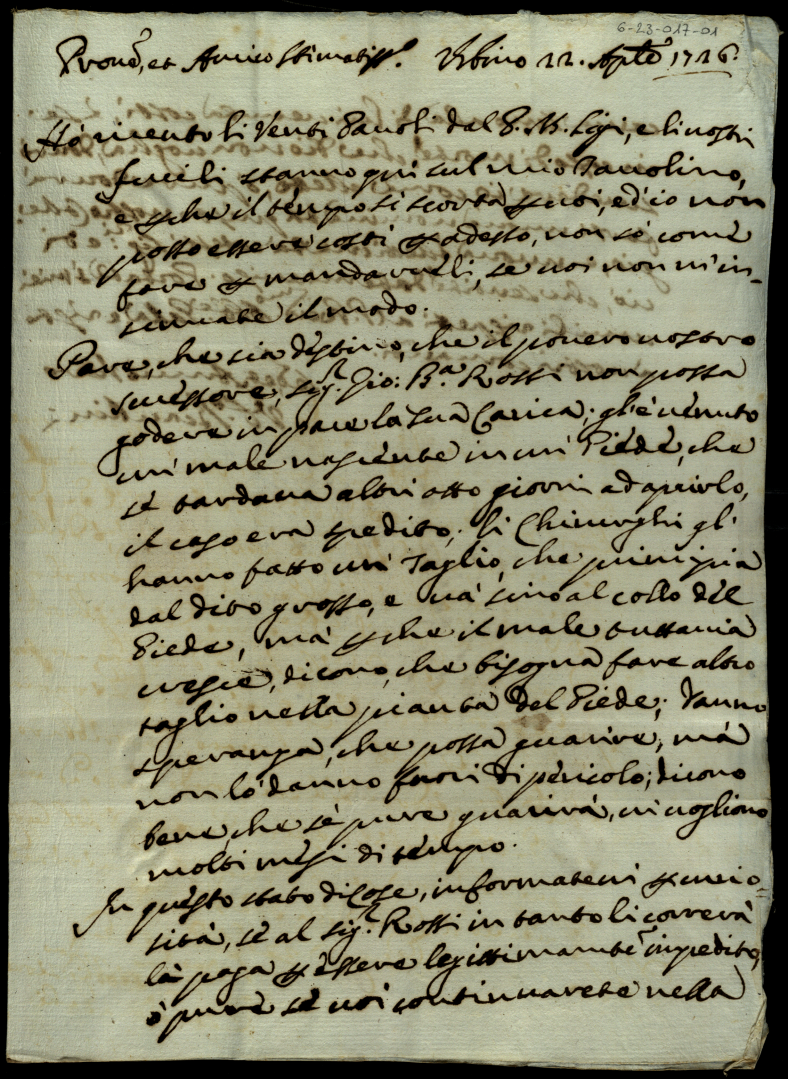 6-23-017-01
Pron̄e, et Amico Stimatiss.º Urbino 22. Aplē 1726.
Hò ricevuto li Venti Pavoli dal P. M. Ligi, e li vostri
fucili stanno quì sul mio Tavolino,
e pche il tempo si scorta p voi, ed io non
posso essere costì p adesso, non sò come
fare p mandarveli, se voi non m'in-
sinuate il modo.
Pare, che sia destino, che il povero nostro
successore, sigʳ. Gio: Bª. Rossi non possa
godere in pace la sua Carica; gl'è venuto
un' male nascente in un' Piede, che
se tardava altri otto giorni ad aprirlo,
il caso era spedito; li Chirurghi gl'
hanno fatto un' Taglio, che principia
dal dito grosso, e và sino al collo del
Piede, mà pche il male tuttavia
cresce, dicono, che bisogna fare altro
taglio nella pianta del Piede; danno
speranza, che possa guarire, mà
non lo danno fuori di pericolo; dicono
bene, che se pure guarirà, vi vogliono
molti mesi di tempo.
In questo stato di cose, informatevi p curio-
sità, se al sigʳ. Rossi in tanto li correrà
la paga p essere legittimamᵗᵉ impedito,
ò pure se voi continuarete nella